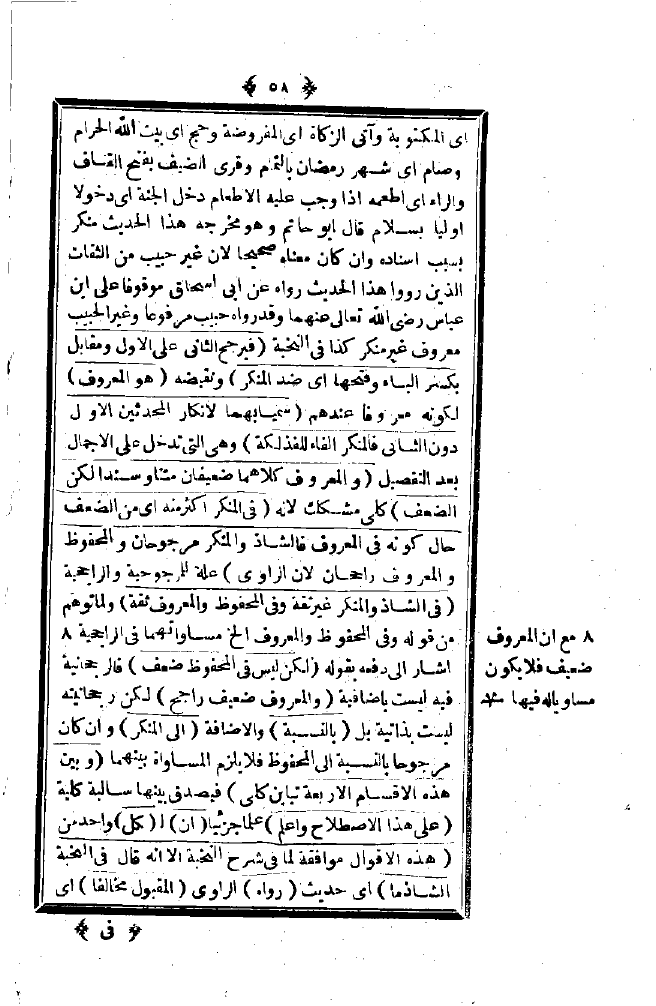 ﴿ ٥٨ ﴾
اى المكتوبة وآتى الزكاة اى المفروضة وحج اى بيت الله الحرام
وصام اى شهر رمضان بالتمام وقرى الضيف بفتح القاف
والراء اى اطعمه اذا وجب عليه الاطعام دخل الجنة اى دخولا
اوليا بسلام قال ابو حاتم وهو مخرجه هذا الحديث منكر
بسبب اسناده وان كان معناه صحيحا لان غير حبيب من الثقات
الذين رووا هذا الحديث رواه عن ابى اسحاق موقوفا على ابن
عباس رضى الله تعالى عنهما وقد رواه حبيب مرفوعا وغير الحبيب
معروف غير منكر كذا فى النخبة (فيرجح الثانى على الاول ومقابل
بكسر الباء وفتحها اى ضد المنكر) ونقيضه (هو المعروف)
لكونه معروفا عندهم (سميا بهما لانكار المحدثين الاول
دون الثانى فالمنكر الفاء للفذلكة) وهى التى تدخل على الاجمال
بعد التفصيل (والمعروف كلاهما ضعيفان متنا وسندا لكن
الضعف) كلى مشكك لانه (فى المنكر اكثر منه اى من الضعف
حال كونه فى المعروف فالشاذ والمنكر مرجوحان والمحفوظ
والمعروف راجحان لان الراوى) علة للمرجوحية والراجحية
(فى الشاذ والمنكر غير ثقة وفى المحفوظ والمعروف ثقة) ولما توهم
من قوله وفى المحفوظ والمعروف الخ مساواتهما فى الراجحية ٨
اشار الى دفعه بقوله (لكن ليس فى المحفوظ ضعف) فالرجحانية
فيه ليست باضافية (والمعروف ضعيف راجح) لكن رجحانيته
ليست بذاتية بل (بالنسبة) والاضافة (الى المنكر) وان كان
مرجوحا بالنسبة الى المحفوظ فلا يلزم المساواة بينهما (وبين
هذه الاقسام الاربعة تباين كلى) فيصدق بينها سالبة كلية
(على هذا الاصطلاح واعلم) علما جزئيا (ان) ا (كل) واحد من
(هذه الاقوال موافقة لما فى شرح النخبة الا انه قال فى النخبة
الشاذ ما) اى حديث (رواه) الراوى (المقبول مخالفا) اى
﴿ فى ﴾
٨ مع ان المعروف
ضعيف فلا يكون
مساويا له فيها